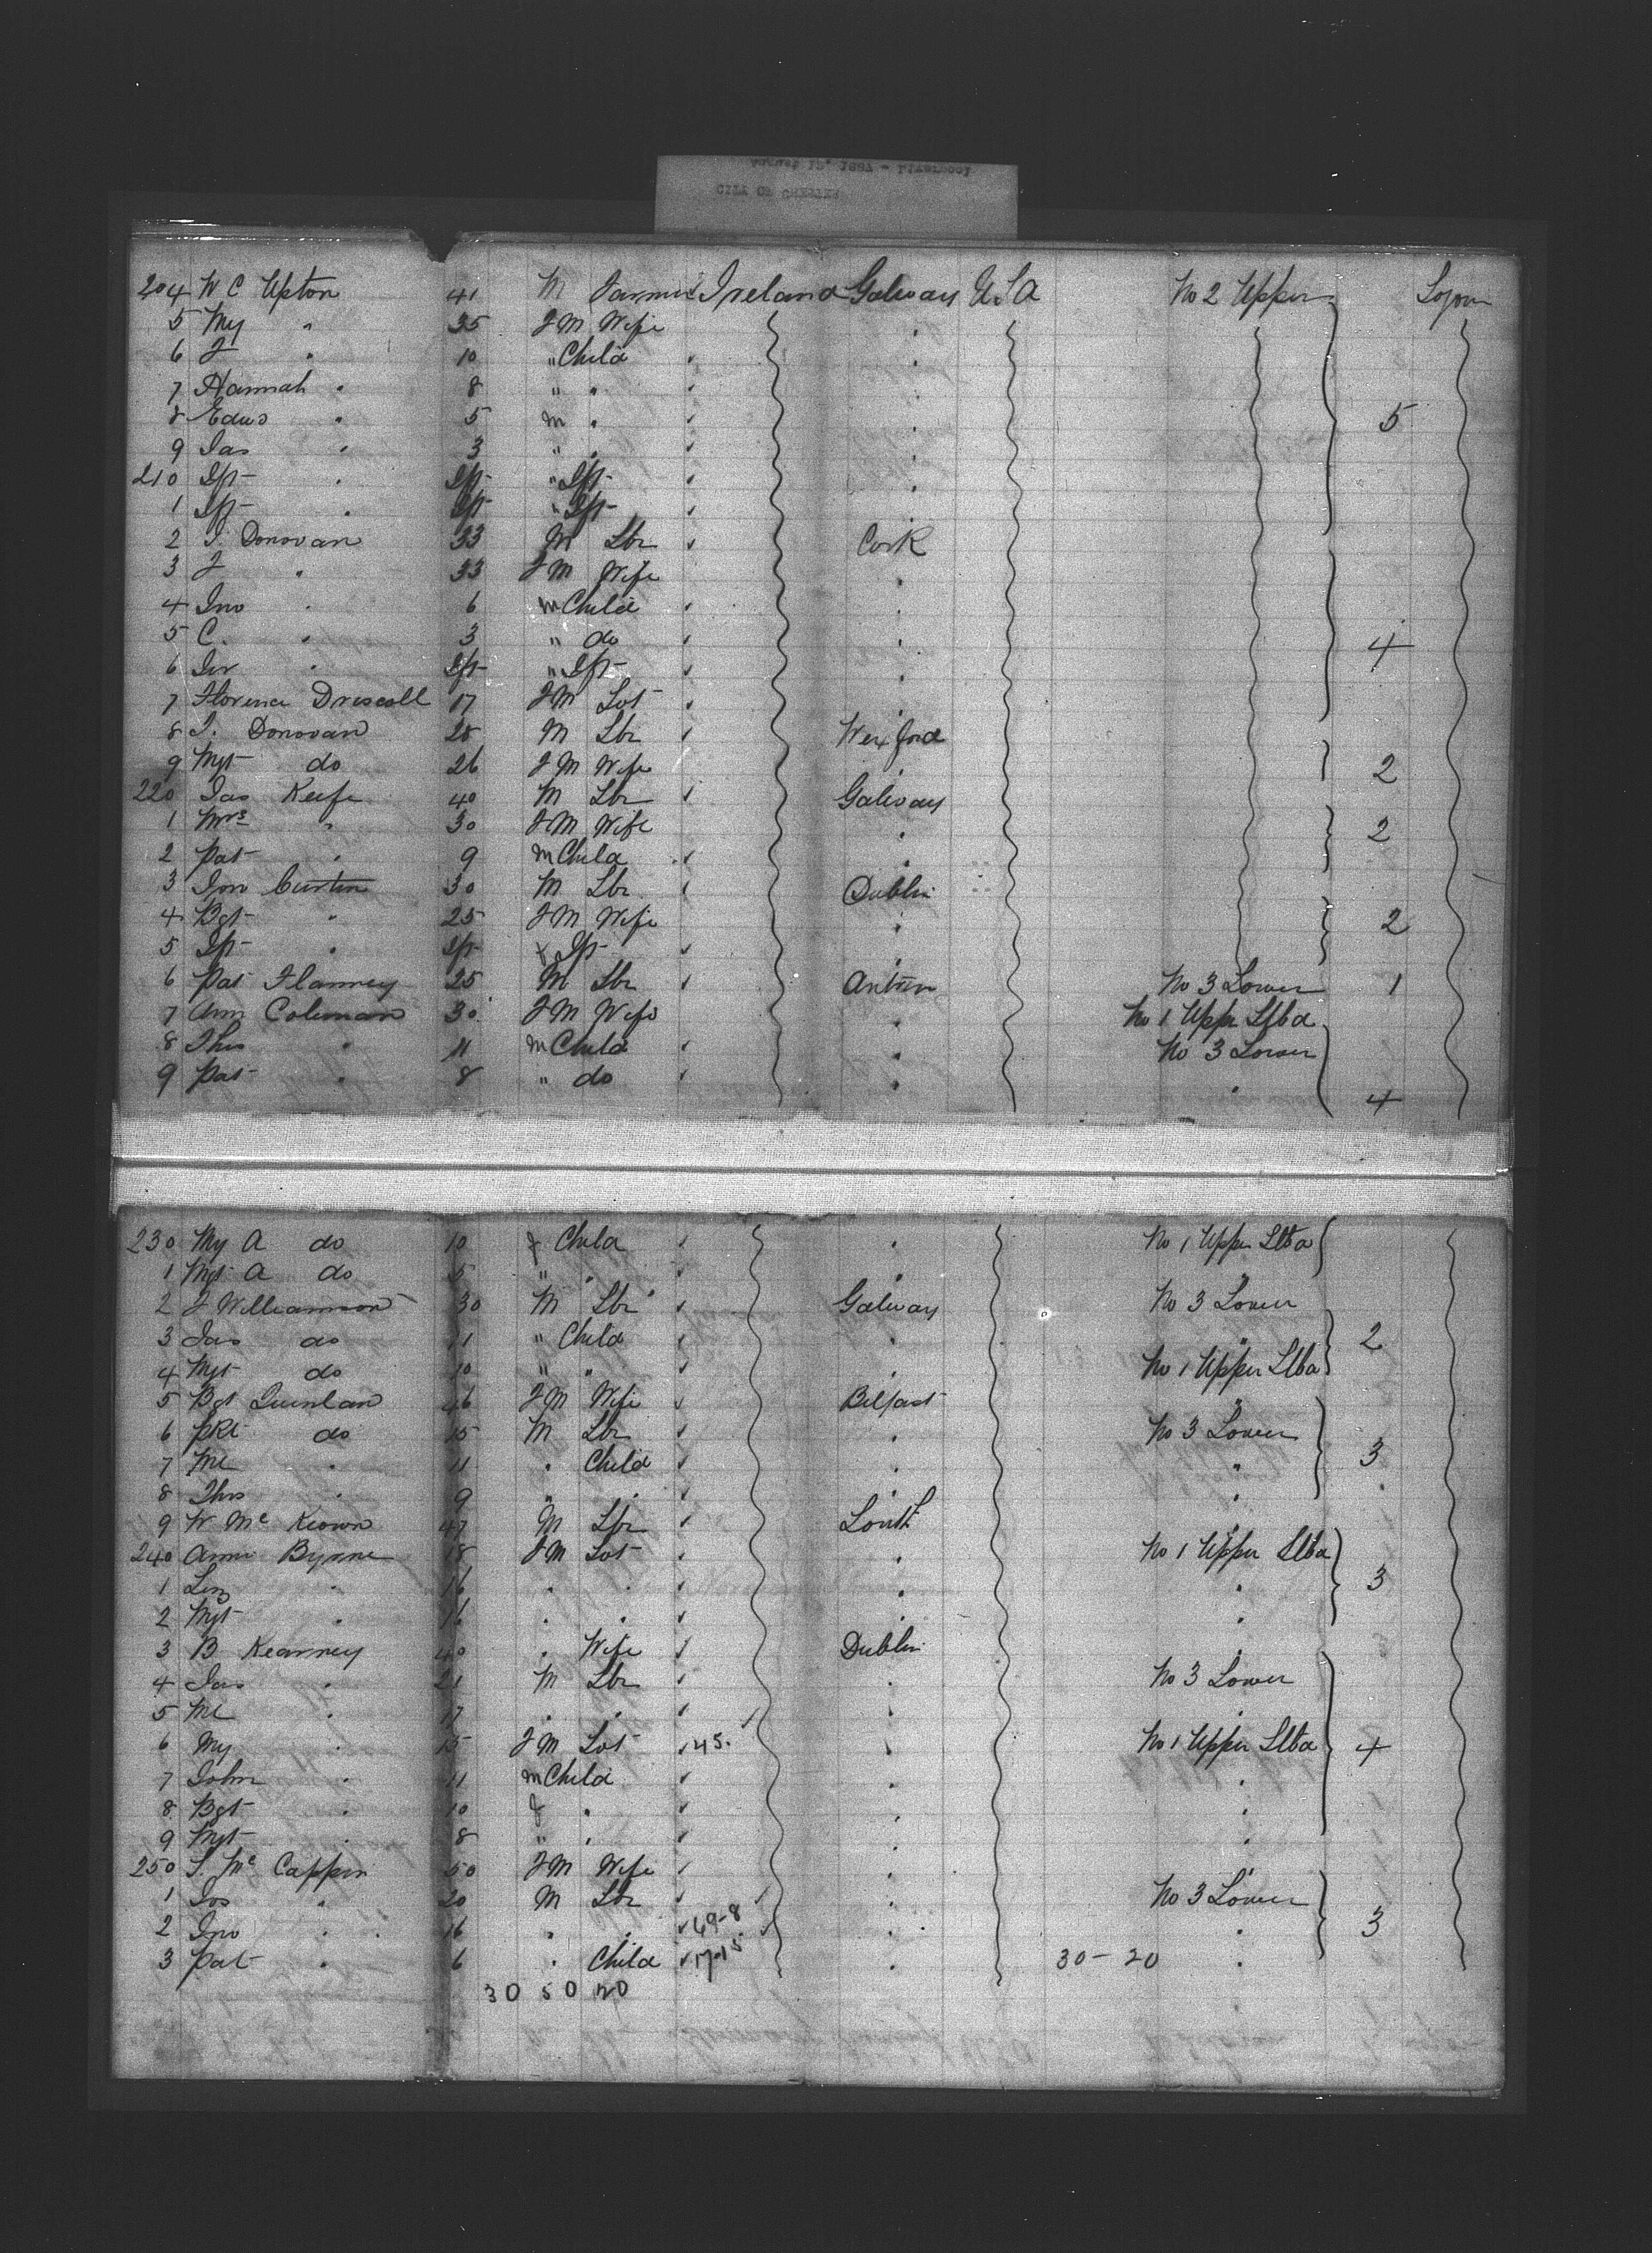 CITY OF CHESTER
204 W C Upton 41 M Farmer Ireland Galway USA No 2 Upper Sojour
5 My " 35 F M Wife "
6 J " 10 " Child "
7 Hannah " 8 " " "
8 Edwd " 5 m " " 5
9 Jas " 3 " " "
210 Ift " Ift " Ift "
1 Ift " Ift " Ift "
2 J. Donovan 33 M Lbr Cork
3 J " 33 F M Wife "
4 Jno " 6 m Child "
5 C. " 3 " do " 4
6 Jer " Ift " Ift "
7 Florence Driscoll 17 F M "
8 J. Donovan 28 M Lbr Wexford
9 Mgt do 26 F M Wife 2
220 Jas Keefe 40 M Lbr Galway
1 Mrs " 30 F M Wife " 2
2 Pat " 9 m Child "
3 Jno Curtin 30 M Lbr Dublin
4 Bgt " 25 F M Wife " 2
5 Ift " Ift f Ift "
6 Pat Flannery 25 M Lbr Antrim No 3 Lower 1
7 Ann Coleman 30 F M Wife " No 1 Upper Stbd
8 Thos " 11 m Child " No 3 Lower
9 Pat " 8 " do " " 4
230 My A do 10 f Child " No 1 Upper Stbd
1 Mgt A do 5 " " " "
2 J Williamson 30 M Lbr Galway No 3 Lower
3 Jas do 11 " Child " " 2
4 Mgt do 10 " " " No 1 Upper Stbd
5 Bgt Quinlan 46 F M Wife Belfast "
6 Pkt do 15 M Lbr " No 3 Lower
7 Ml " 11 " Child " " 3
8 Thos " 9 " " " "
9 W McKeown 47 M Lbr Louth "
240 Annie Byrne 18 F M " No 1 Upper Stbd
1 " 16 " " " " 3
2 Mgt " 16 " " " "
3 B Kearney 40 " Wife Dublin "
4 Jas " 21 M Lbr " No 3 Lower
5 Ml " 17 " " " "
6 My " 15 F M 45. " No 1 Upper Stbd 4
7 John " 11 m Child " "
8 Bgt " 10 f " " "
9 Mgt " 8 " " " "
250 S. McCappin 50 F M Wife " "
1 Jos " 20 M Lbr " No 3 Lower
2 Jno " 16 " " 69-8 " " 3
3 Pat " 6 " Child 17-15 " 30-20 "
30 50 20